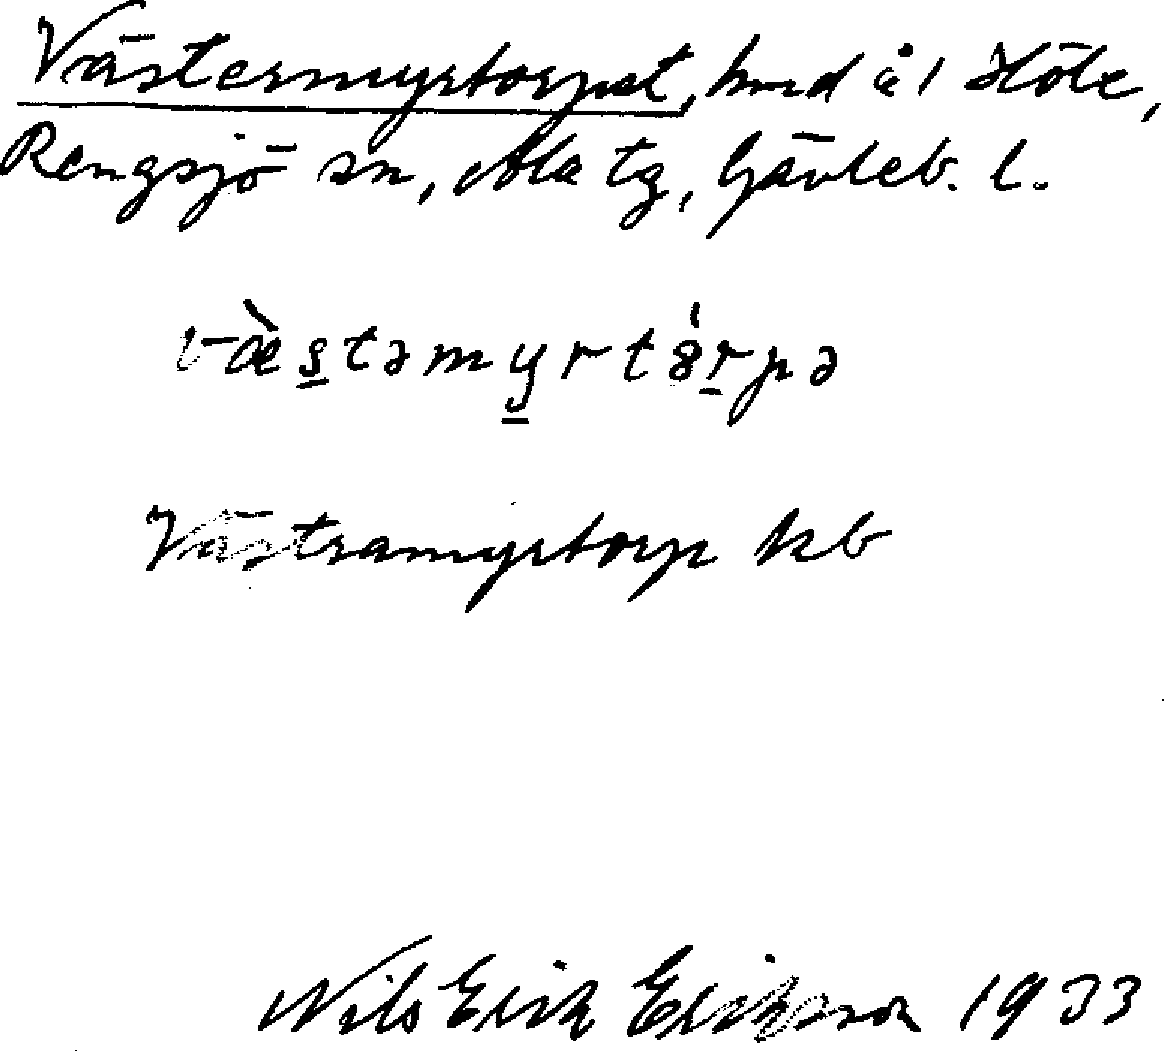 Västermyrtorpet, hmd å 1 Höle,
Rengsjö sn, Ala tg, Gävleb. l.
væ̀s̲təmy̲rtȣ́r̲pə
Västramyrtorp kb
Nils Erik Eriksson 1933